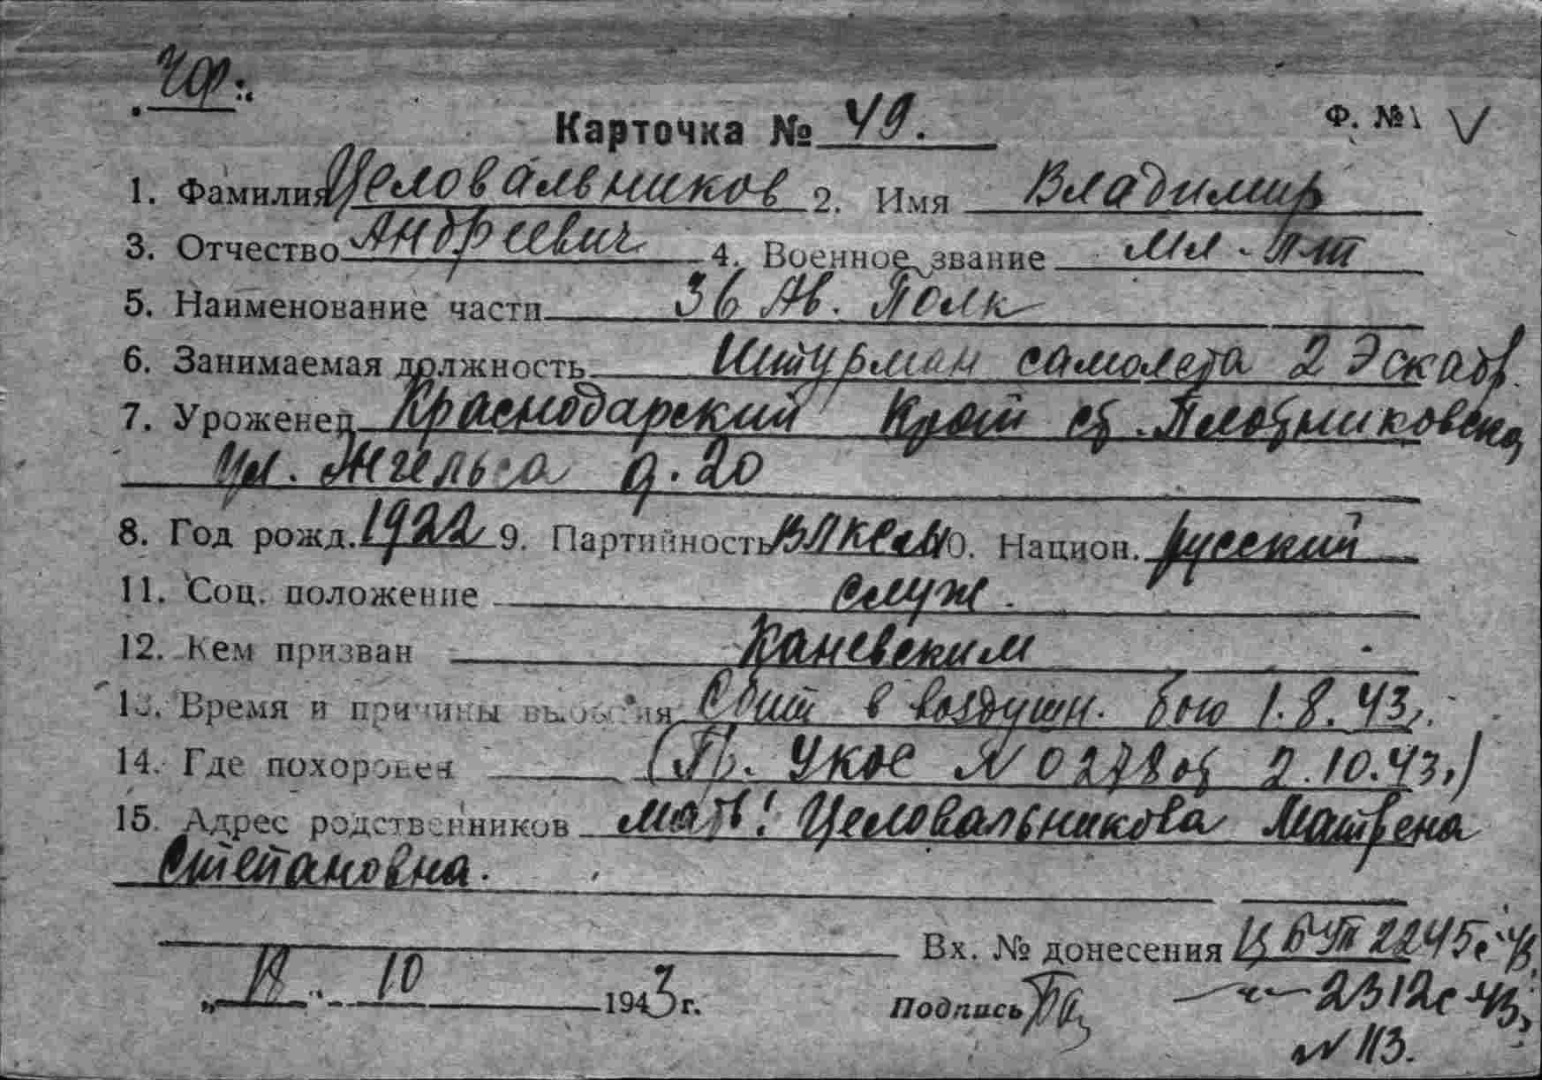 ЧФ.
Карточка № 49. Ф. №1 V
1. Фамилия Целовальников 2. Имя Владимир
3. Отчество Андреевич 4. Военное звание мл-лт
5. Наименование части 36 Ав. Полк
6. Занимаемая должность Штурман самолета 2 Эскадр.
7. Уроженец Краснодарский Край ст.
ул. Энгельса д. 20
8. Год рожд. 1922 9. Партийность ВЛКСМ 10. Национ. русский
11. Соц. положение служ.
12. Кем призван Каневским
13. Время и причины выбытия Сбит в воздушн. бою 1.8.43г.
14. Где похоронен (Пр. УКОС № 0278 от 2.10.43г.)
15. Адрес родственников мать: Целовальникова Матрена
Степановна.
Вх. № донесения ЦБУП 2245с-43.
„18“ 10 1943 г. Подпись
-"- 2312с-43г
№ 113.